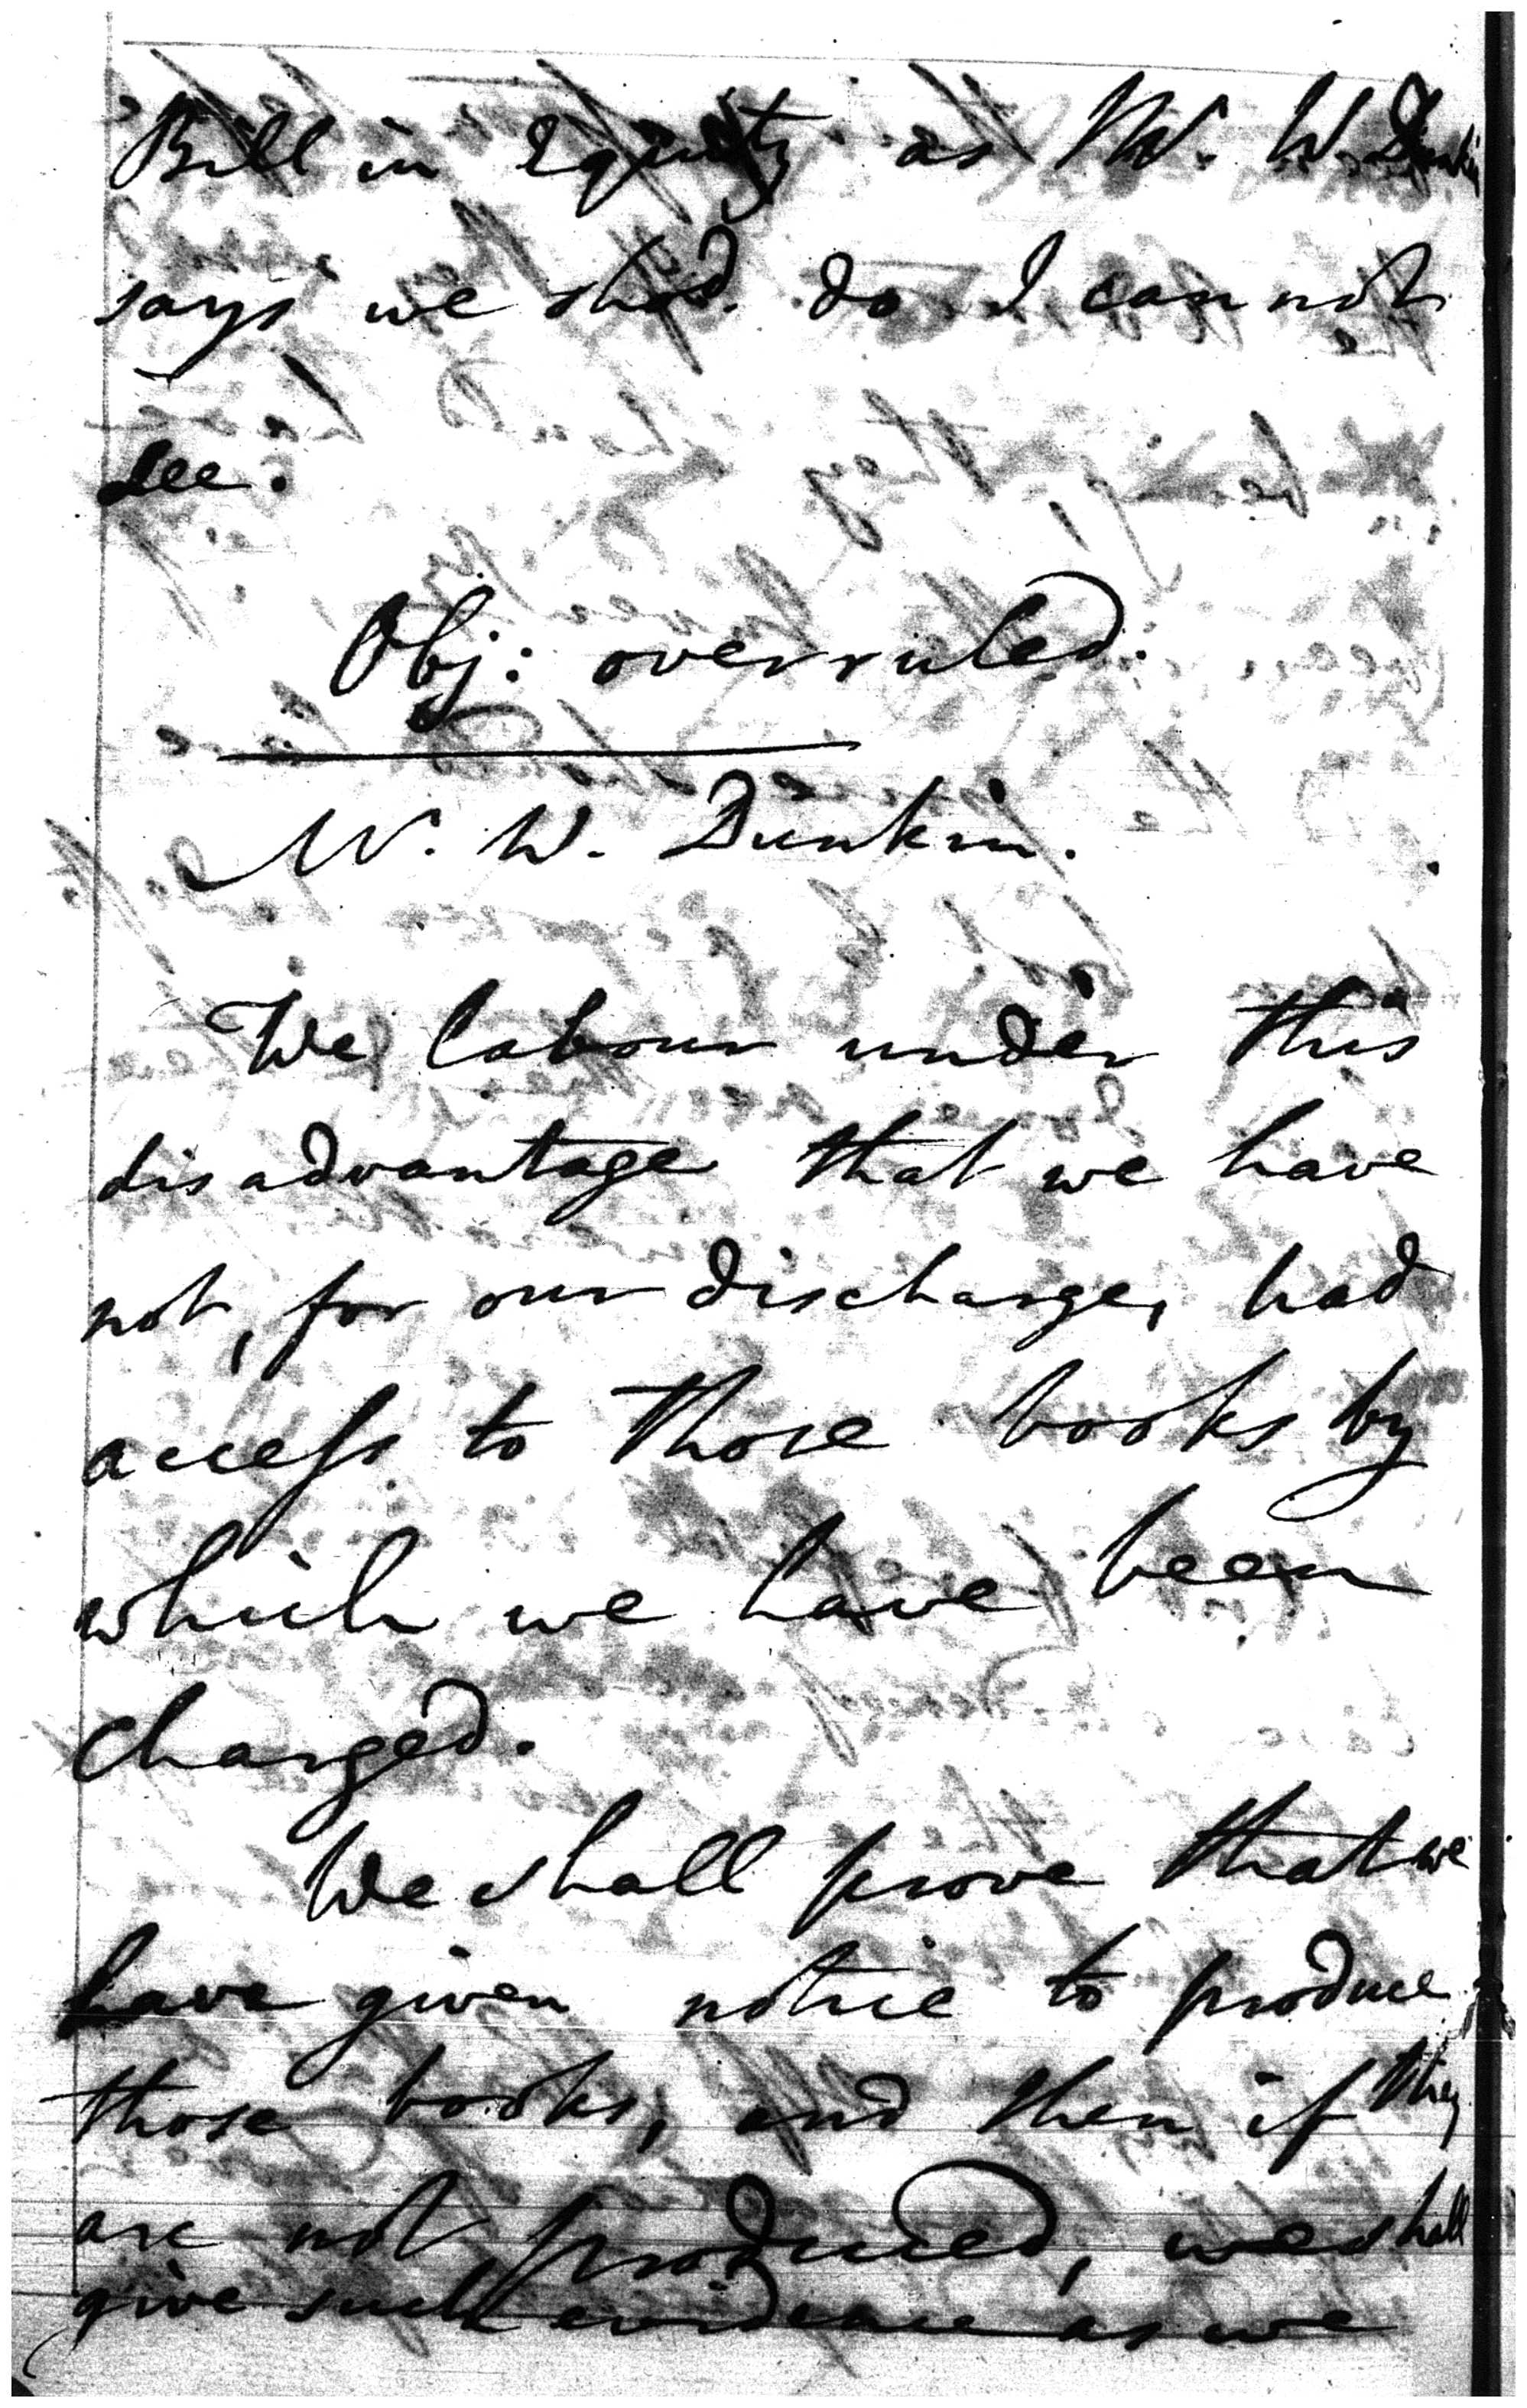 Bill in Equity as W. W. Dunkin
says we shod. do I can not
see.
Obj: overruled.
W. W. Dunkin.
We labour under this
disadvantage that we have
not, for our discharge, had
access to those books by
which we have been
charged.
We shall prove that we
have given notice to produce
those books, and then if they
are not produced, we shall
give such evidence as we